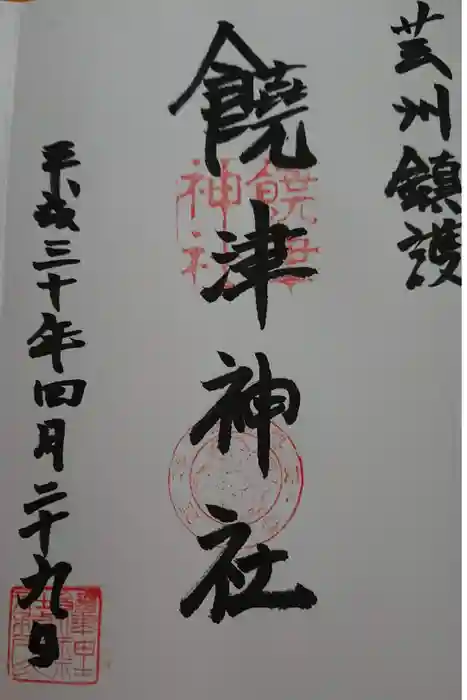 芸州鎮護
饒津神社
平成三十年四月二十九日